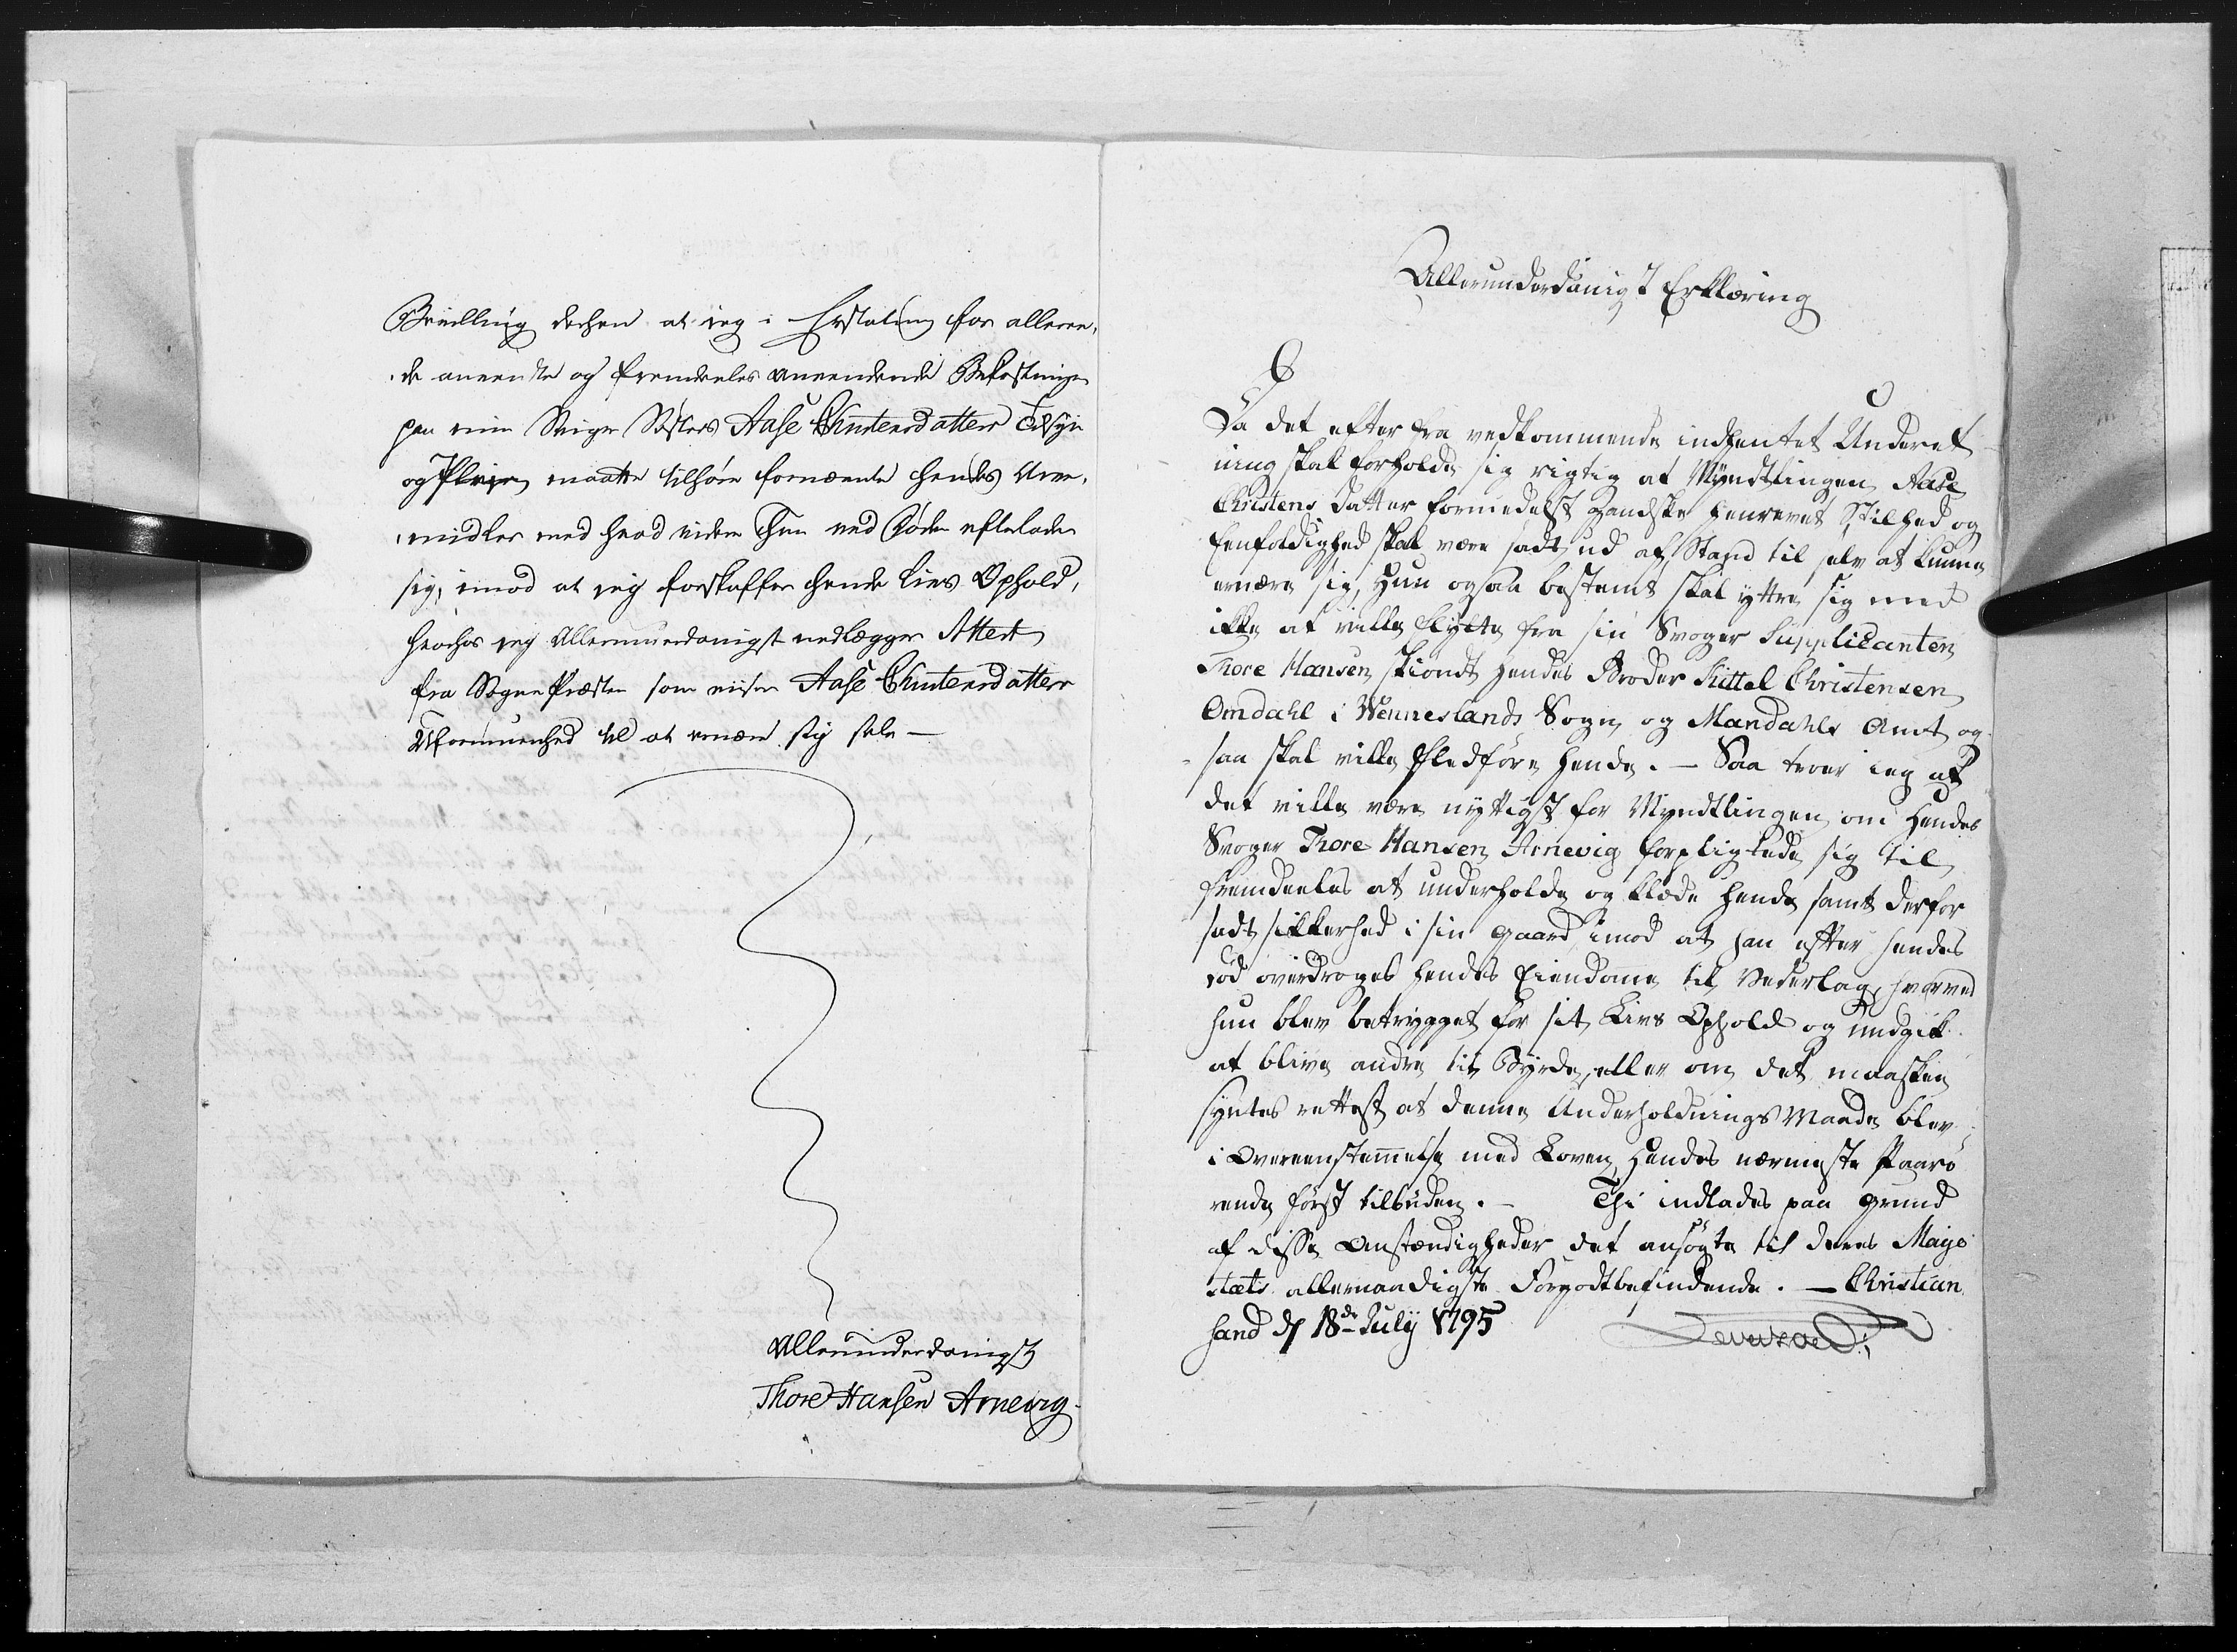 Bevilling derhen at ieg i Erstatning for allere,
,de anvendte og fremdeeles anvendende Bekostninger
paa min Sviger Søsters Aase Christensdatters Tilsyn
og Pleie, maatte tilhøre fornævnte hendes Arve,
,midler med hvad videre Hun ved Døden efterlader
sig, imod at ieg forskaffer hende Livs Ophold,
hvorhos ieg Allerunderdanigst vedlægger Attest
fra Sogne Præsten som viiser Aase Christensdatters
Uformuenhed til at ernære sig selv —
Allerunderdanigst
Thore Hansen Arnevig.
Allerunderdanigst Erklæring
Da det efter fra vedkommende indhentet Underret-
ning skal forholde sig rigtig at Myndtlingen Aase
Christens datter formedelst gandske henrevet Stilhed og
Eenfoldighed skal være sadt ud af Stand til selv at kunne
ernære sig, Hun ogsaa bestemt skal yttre sig med
ikke at ville flytte fra sin Svoger Supplicanten
Thore Hansen skiondt hendes Broder Kittel Christensen
Omdahl i Wenneslands Sogn og Mandahls Amt og-
saa skal ville fledføre hende. — Saa troer ieg at
det ville være nyttigst for Myndtlingen om hendes
Svoger Thore Hansen Arnevig forpligtede sig til
fremdeeles at underholde og klæde hende samt derfor
sadt sikkerhed i sin Gaard, imod at han efter hendes
død overdroges hendes Eiendomme til Vederlag, hvorved
hun blev betrygget for sit Livs Ophold og undgik
at blive andre til Byrde, eller om det maaskee
syntes rettest at denne Underholdnings Maade blev
i Overeenstemmelse med Loven hendes nærmeste Paarø
rende først tilbuden. — Thi indlades paa Grund
af disse Omstændigheder det ansøgte til Deres Maje
stæts allernaadigste Forgodtbefindende. — Christian
sand d 18de July 1795